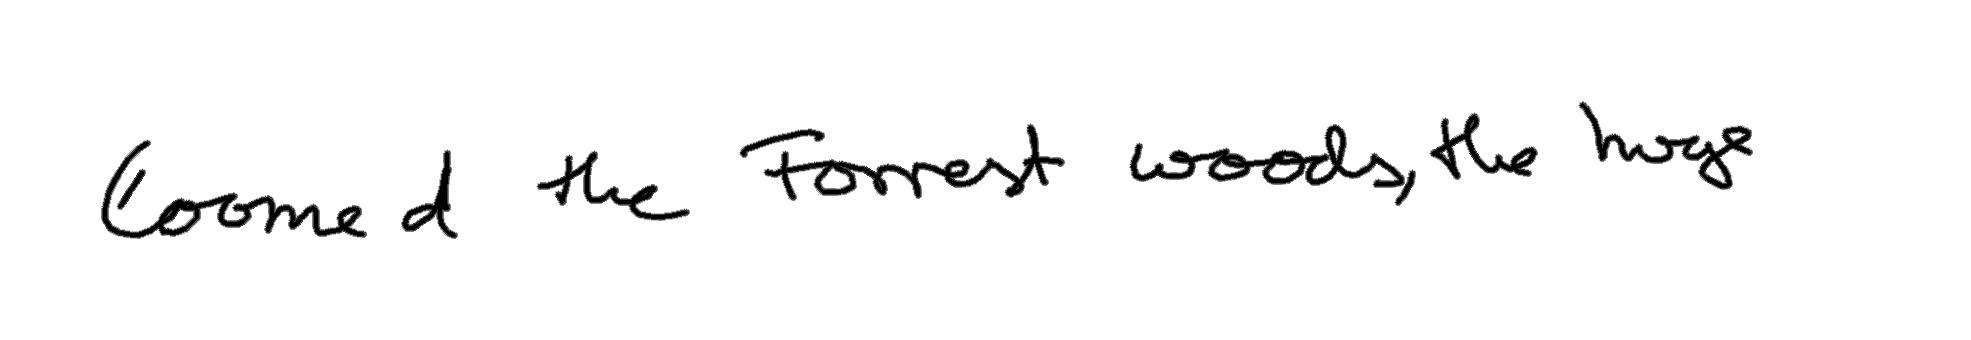 Loomed the Forrest woods, the huge